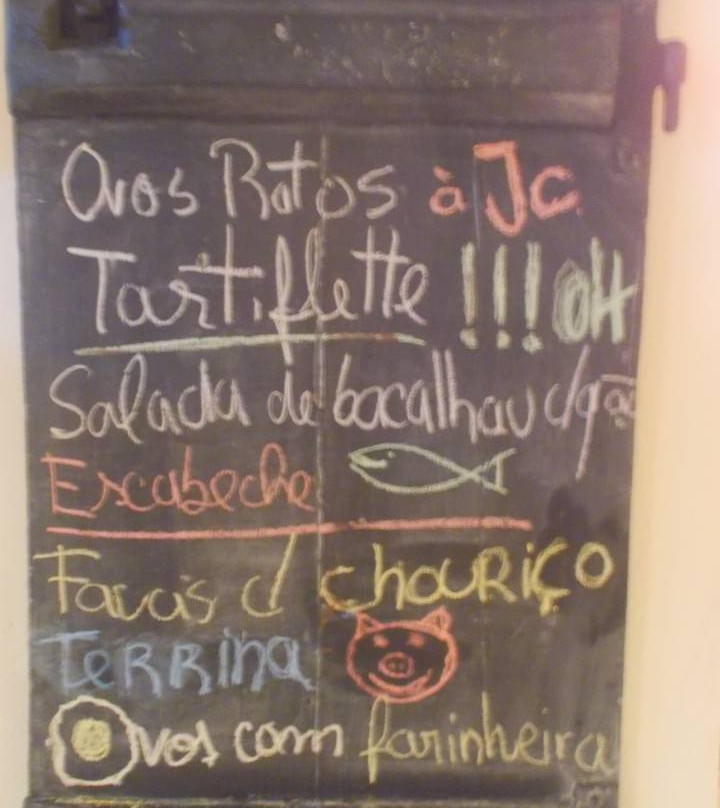 Ovos Rotos à Jc
Tartiflette !!! OH
Salada de bacalhau c/grão
Escabeche
Favas c/ chouRiço
TeRRina
Ovos com farinheira